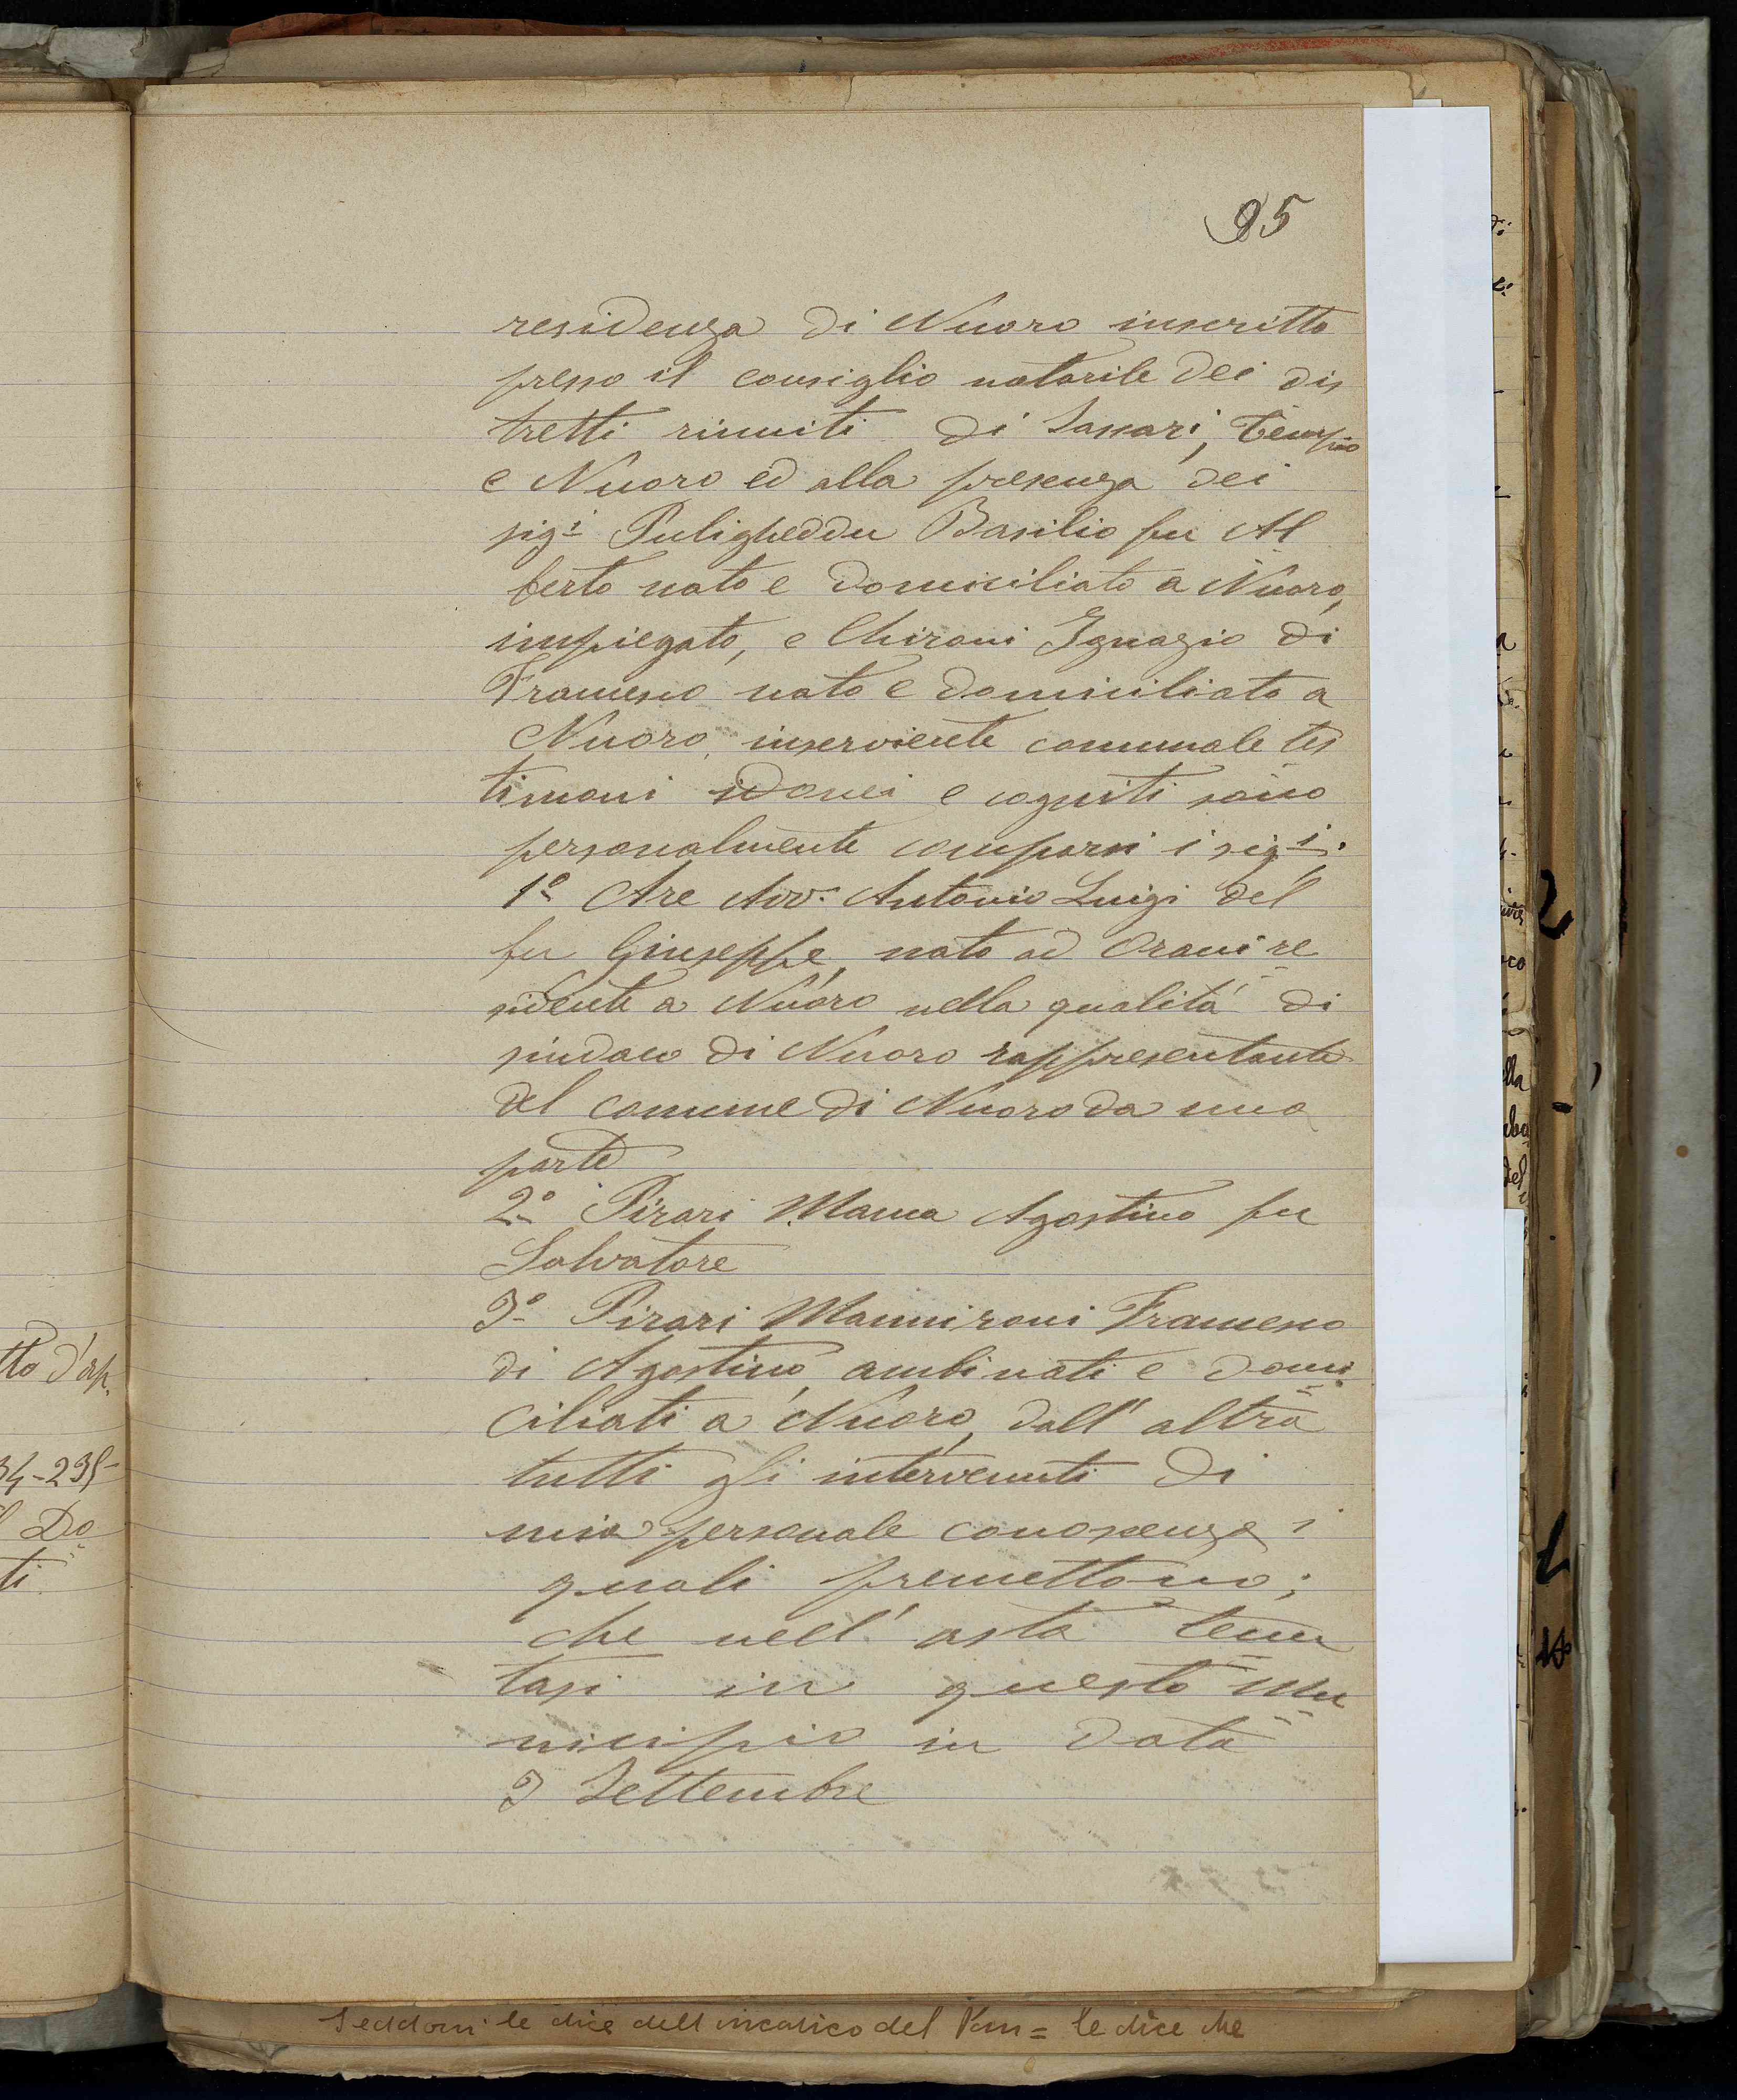 95
residenza di Nuoro inscritto
presso il consiglio notarile dei dis
tretti riuniti di Sassari, Tempio
e Nuoro ed alla presenza dei
sigⁱ Puligheddu Basilio fu Al
berto nato e domiciliato a Nuoro,
impiegato, e Chironi Ignazio di
Francesco nato e domiciliato a
Nuoro, inserviente comunale tes
timoni idonei e cogniti sono
personalmente comparsi i sigⁱ.
1º Are Avv. Antonio Luigi del
fu Giuseppe, nato ad Orani re
sidente a Nuoro nella qualità di
sindaco di Nuoro rappresentante
del comune di Nuoro da una
parte
2º Pirari Manca Agostino fu
Salvatore
3º Pirari Mannironi Francesco
di Agostino, ambi nati e domi
ciliati a Nuoro, dall'altra
tutti gli intervenuti di
mia personale conoscenza i
quali premettono;
che nell'asta tenu
tasi in questo Mu
nicipio in data
3 Settembre
tto d'ap.
34-235
Do
ti
Seddoni le dice dell incarico del = le dice che